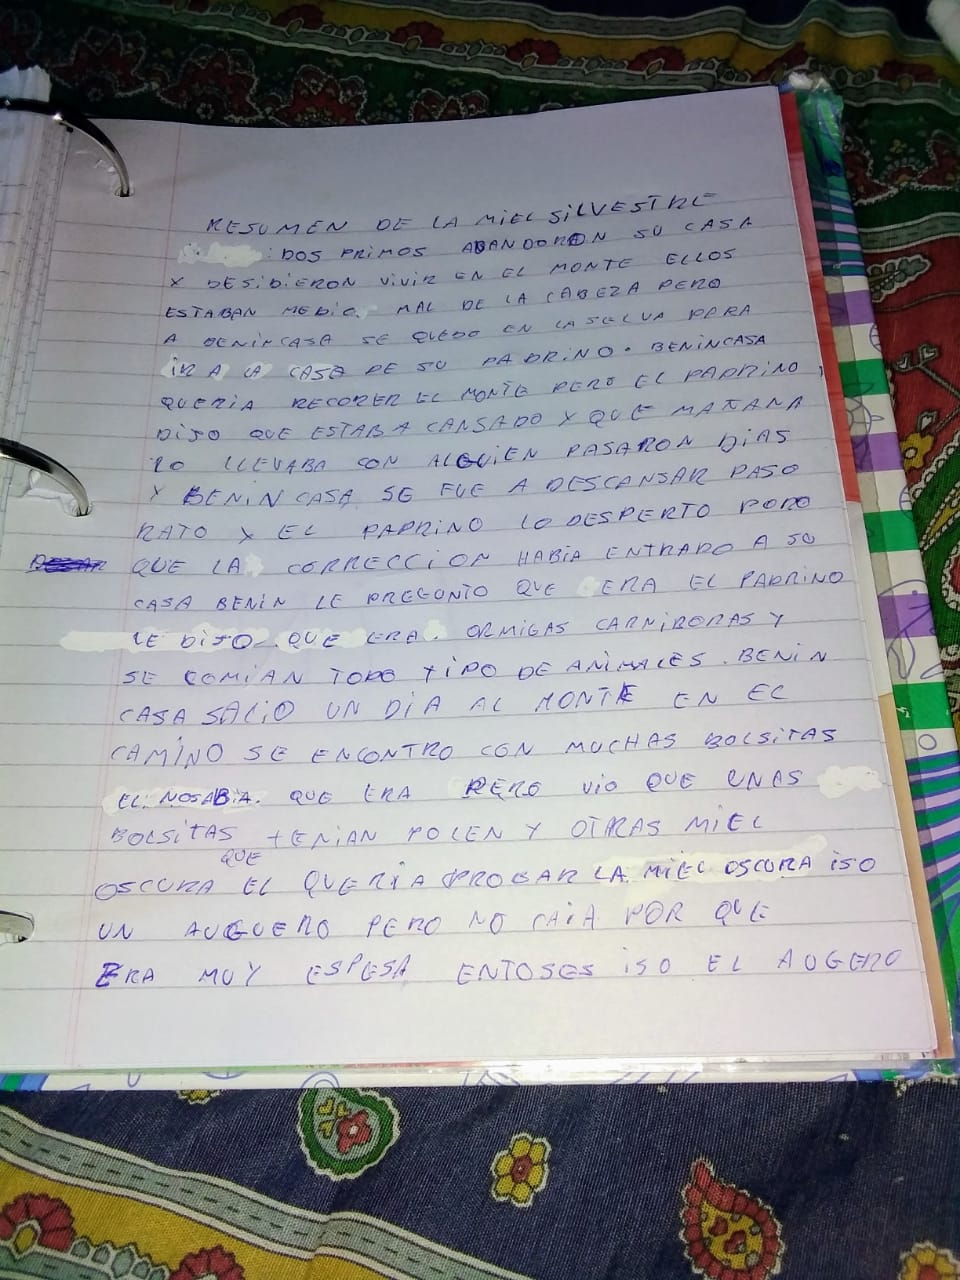 RESUMEN DE LA MIEL SILVESTRE
: DOS PRIMOS ABANDORON SU CASA
Y DESIDIERON VIVIR EN EL MONTE ELLOS
ESTABAN MEDIO MAL DE LA CABEZA PERO
A BENINCASA SE QUEDO EN LA SELVA PARA
IR A LA CASA DE SU PADRINO. BENINCASA
QUERIA RECORER EL MONTE PERO EL PADRINO
DIJO QUE ESTABA CANSADO Y QUE MAÑANA
LO LLEVABA CON ALGUIEN PASARON DIAS
Y BENIN CASA SE FUE A DESCANSAR PASO
RATO Y EL PADRINO LO DESPERTO PORO
QUE LA CORRECCION HABIA ENTRADO A SU
CASA BENIN LE PREGUNTO QUE ERA EL PADRINO
LE DIJO QUE ERA. ORMIGAS CARNIRORAS Y
SE COMIAN TODO TIPO DE ANIMALES. BENIN
CASA SALIO UN DIA AL MONTE EN EL
CAMINO SE ENCONTRO CON MUCHAS BOLSITAS
EL NOSABIA. QUE ERA PERO VIO QUE UNAS
BOLSITAS TENIAN POLEN Y OTRAS MIEL
QUE
OSCURA EL QUERIA PROBAR LA MIEL OSCURA ISO
UN AUGUERO PERO NO CAIA POR QUE
ERA MUY ESPESA ENTOSES ISO EL AUGERO